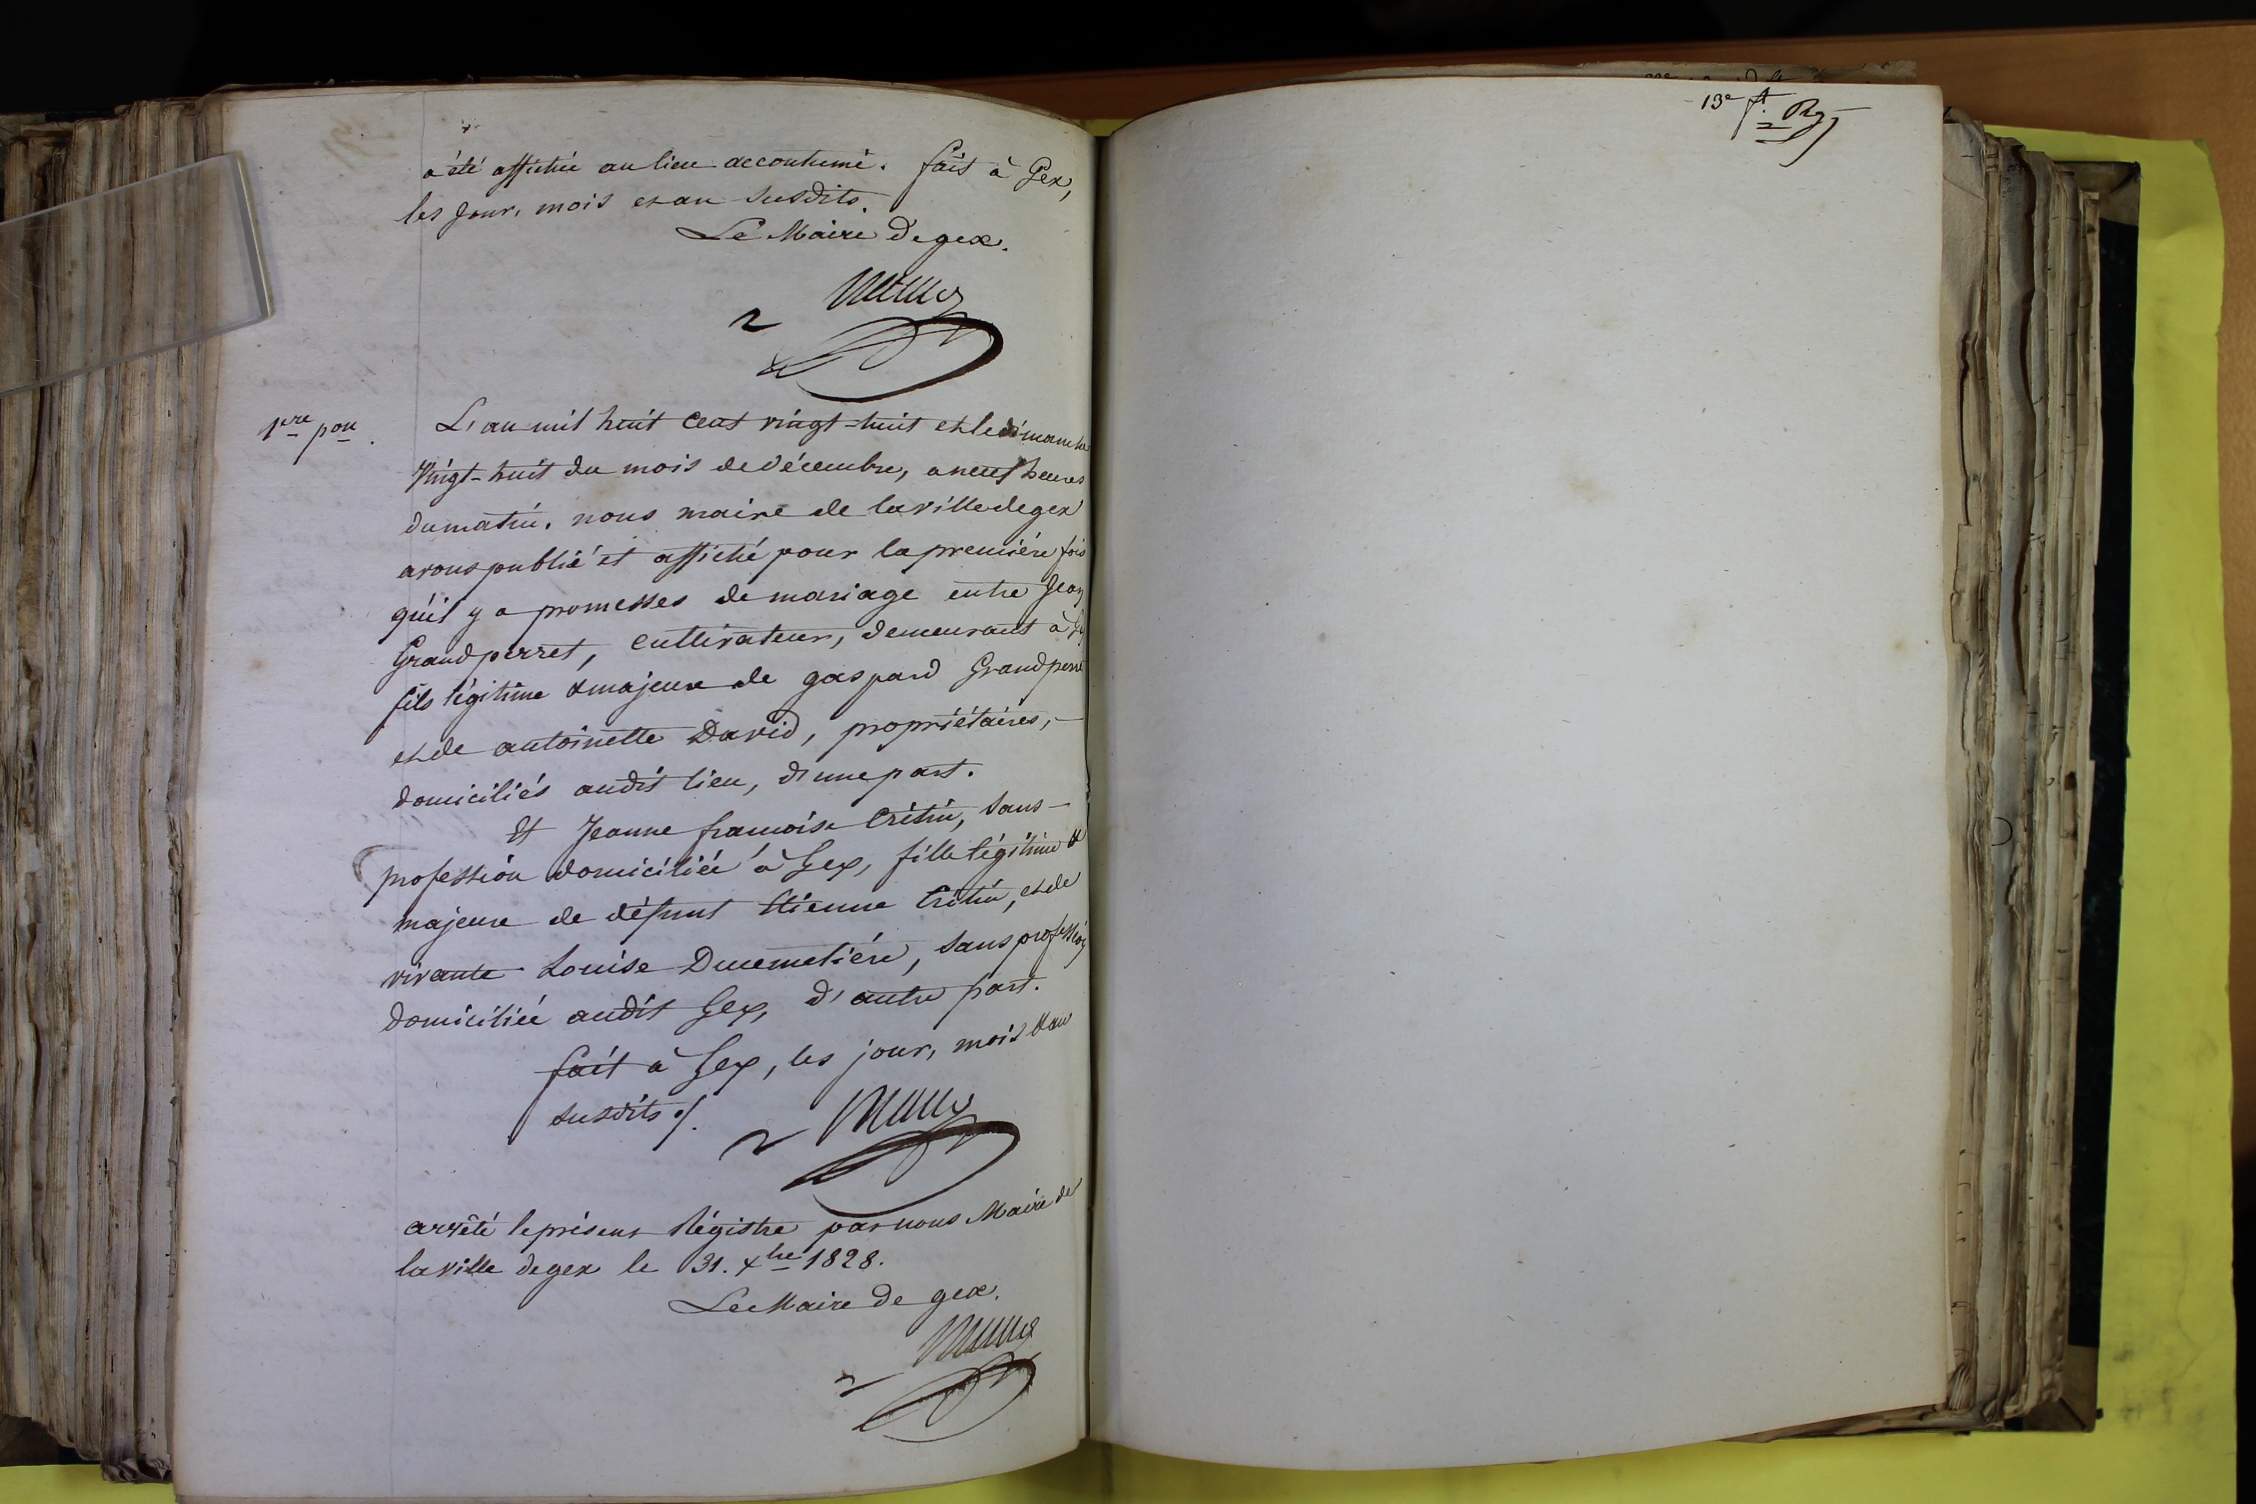 a été affichée au lieu accoutumé. fait à Gex,
les jour, mois et an susdits.
Le Maire de gex.
1ere pon.
L'an mil huit cent vingt-huit et le dimanche
vingt-huit du mois de décembre, a neuf heures
du matin, nous maire de la ville de gex
avons publié et affiché pour la premiére fois
qu'il y a promesses de mariage entre Jean
Grandperret, cultivateur, demeurant à
fils légitime & majeur de gaspard Grandperret
et de antoinette David, propriétaires,
domiciliés audit lieu, d'une part.
Et Jeanne francoise Crétin, sans
profession domiciliée à Gex, fille légitime &
majeure de défunt Etienne Crétin, et de
vivante Louise Ducemetiére, sans profession
domiciliée audit Gex, d'autre part.
fait à Gex, les jour, mois & an
susdits ./.
arrêté le présent régistre par nous Maire de
la ville de gex le 31. xbre 1828.
Le Maire de gex.
13e ft.